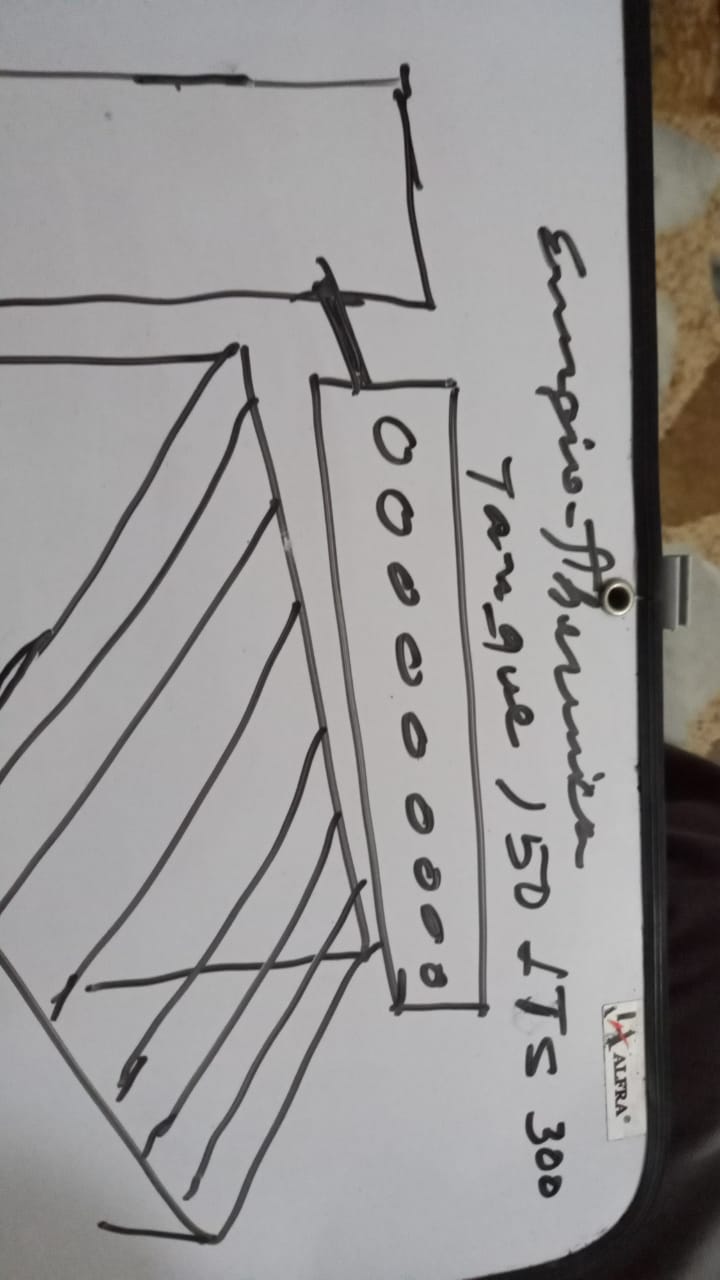 ALFRA®
Energia-thermica
Tanque 150 LTS 300